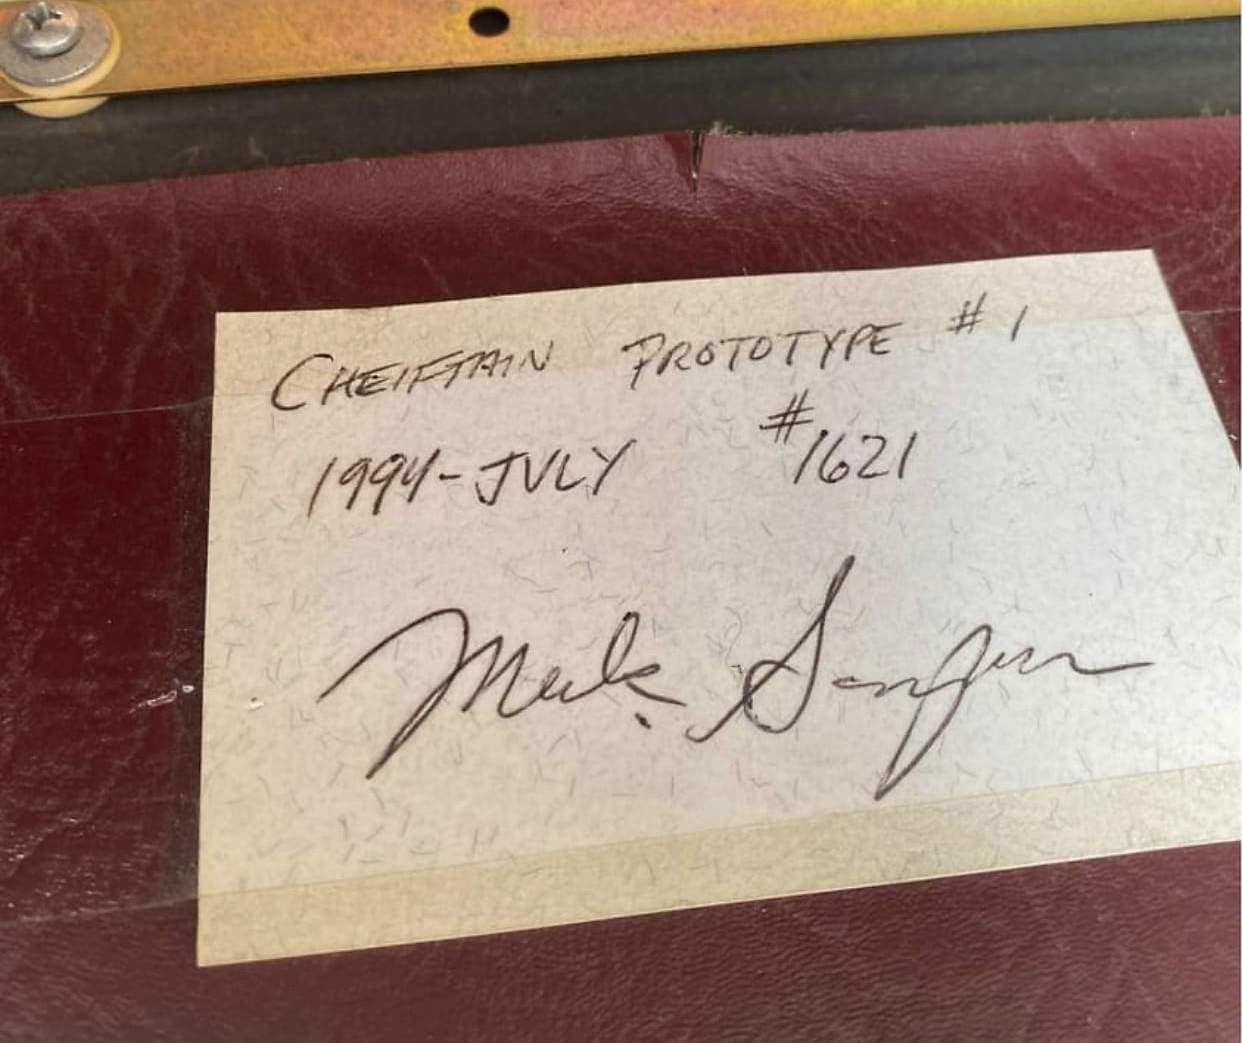 CHEIFTAIN PROTOTYPE #1
1994-JULY #1621
Mark Sampson